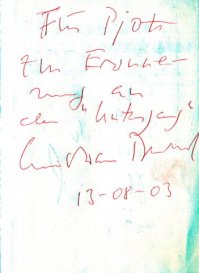 Für Pjotr
zur Erinne-
rung an
den "Untergang"
Christian
13-08-03